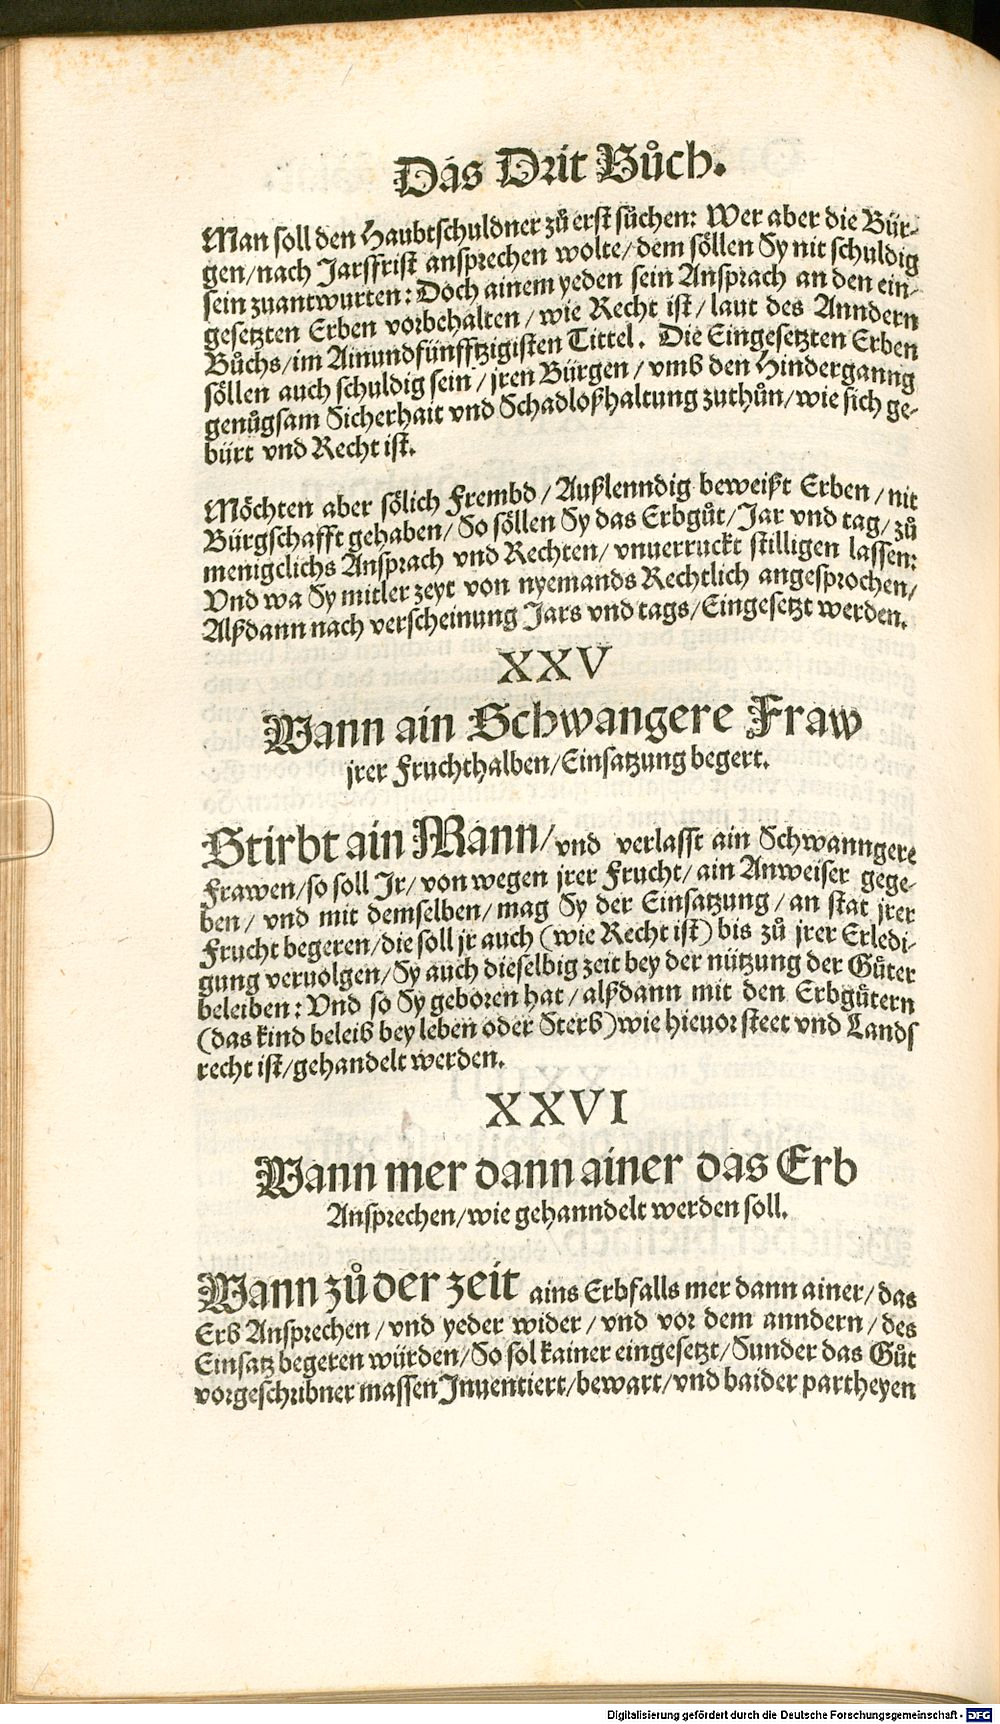 Das Drit Bůch.
Man soll den Haubtschuldner zů erst sůchen: Wer aber die Bür-
gen/nach Jarsfrist ansprechen wolte/dem söllen Sy nit schuldig
sein zuantwurten: Doch ainem yeden sein Ansprach an den ein-
gesetzten Erben vorbehalten/wie Recht ist/laut des Anndern
Bůchs/im Ainundfünfftzigisten Tittel. Die Eingesetzten Erben
söllen auch schuldig sein/jren Bürgen/vmb den Hinderganng
genůgsam Sicherhait vnd Schadloßhaltung zuthůn/wie sich ge-
bürt vnd Recht ist.
Möchten aber sölich Frembd/Außlenndig beweißt Erben/nit
Bürgschafft gehaben/So söllen Sy das Erbgůt/Jar vnd tag/zů
menigclichs Ansprach vnd Rechten/vnuerruckt stilligen lassen:
Vnd wa Sy mitler zeyt von nyemands Rechtlich angesprochen/
Alßdann nach verscheinung Jars vnd tags/Eingesetzt werden.
XXV
Wann ain Schwangere Fraw
jrer Fruchthalben/Einsatzung begert.
Stirbt ain Mann/vnd verlasst ain Schwanngere
Frawen/so soll Jr/von wegen jrer Frucht/ain Anweiser gege-
ben/vnd mit demselben/mag Sy der Einsatzung/an stat jrer
Frucht begeren/die soll jr auch (wie Recht ist) bis zů jrer Erledi-
gung veruolgen/Sy auch dieselbig zeit bey der nützung der Gůter
beleiben: Vnd so Sy geboren hat/alßdann mit den Erbgůtern
(das kind beleib bey leben oder Sterb) wie hieuor steet vnd Lands
recht ist/gehandelt werden.
XXVI
Wann mer dann ainer das Erb
Ansprechen/wie gehanndelt werden soll.
Wann zů der zeit ains Erbfalls mer dann ainer/das
Erb Ansprechen/vnd yeder wider/vnd vor dem anndern/des
Einsatz begeren würden/So sol kainer eingesetzt/Sunder das Gůt
vorgeschribner massen Jnuentiert/bewart/vnd baider partheyen
Digitalisierung gefördert durch die Deutsche Forschungsgemeinschaft - DFG